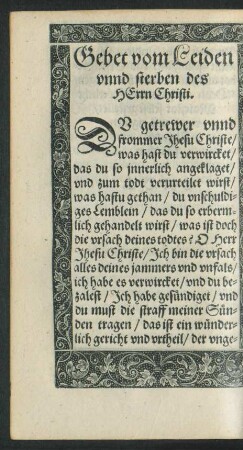 Gebet vom Leiden
vnnd sterben des
HErrn Christi.
DV getrewer vnnd
frommer Jhesu Christe/
was hast du verwircket/
das du so jnnerlich angeklaget/
vnd zum tode verurteilet wirst/
was hastu gethan/ du vnschuldi-
ges Lemblein/ das du so erberm-
lich gehandelt wirst/ was ist doch
die vrsach deines todtes? O Herr
Jhesu Christe/ Ich bin die vrsach
alles deines jammers vnd vnfals/
ich habe es verwircket/ vnd du be-
zalest/ Ich habe gesündiget/ vnd
du must die straff meiner Sün-
den tragen/ das ist ein wünder-
lich gericht vnd vrtheil/ der vnge-